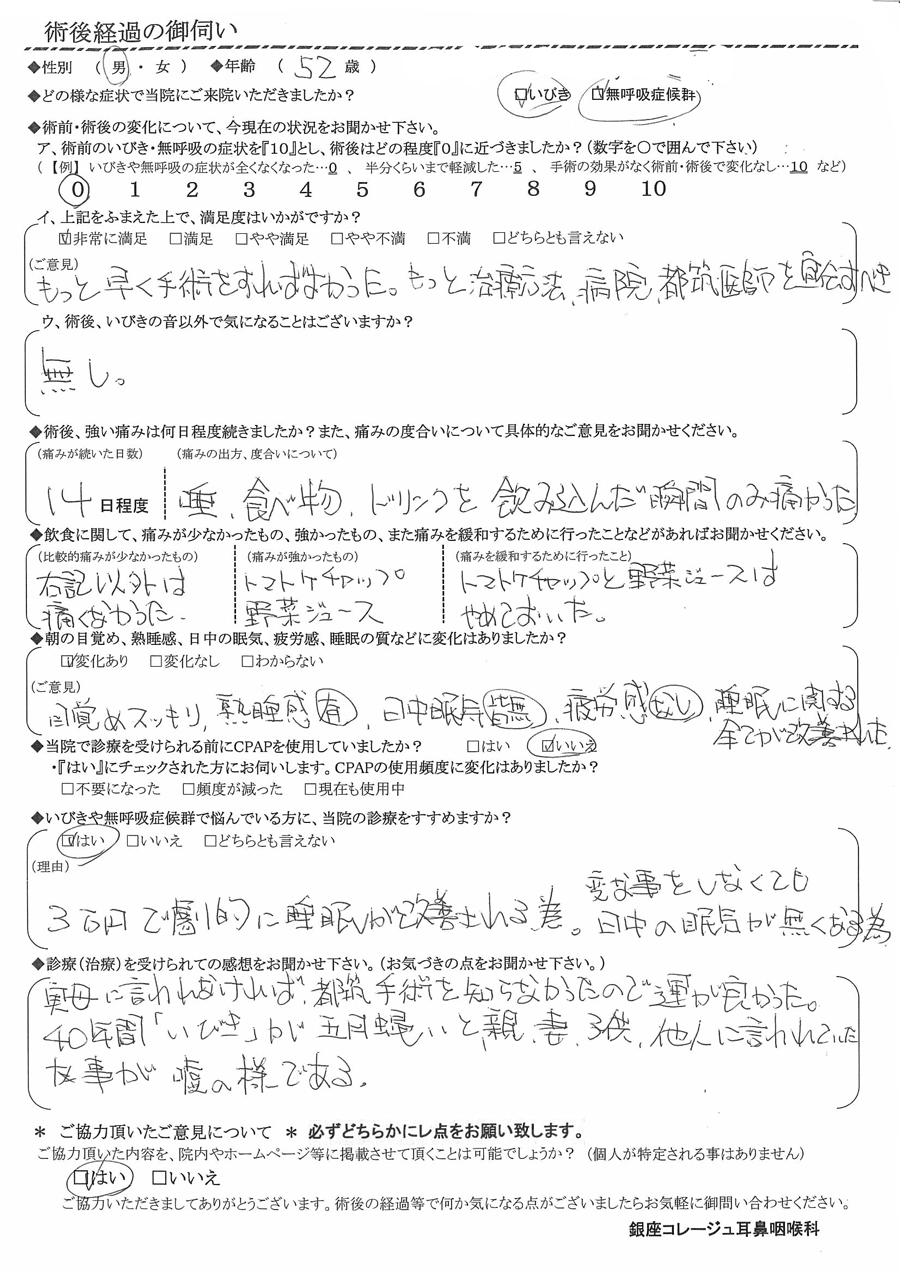 術後経過の御伺い
◆性別 （ 男 ・ 女 ） ◆年齢 （ 52 歳 ）
◆どの様な症状で当院にご来院いただきましたか？ ☑いびき ☑無呼吸症候群
◆術前・術後の変化について、今現在の状況をお聞かせ下さい。
ア、術前のいびき・無呼吸の症状を『10』とし、術後はどの程度『0』に近づきましたか？（数字を〇で囲んで下さい）
（【例】 いびきや無呼吸の症状が全くなくなった…0 、 半分くらいまで軽減した…5 、 手術の効果がなく術前・術後で変化なし…10 など）
0 1 2 3 4 5 6 7 8 9 10
イ、上記をふまえた上で、満足度はいかがですか？
☑非常に満足 □満足 □やや満足 □やや不満 □不満 □どちらとも言えない
（ご意見）
もっと早く手術をすればよかった。もっと治療方法、病院、都筑医師を宣伝すべき
ウ、術後、いびきの音以外で気になることはございますか？
無し。
◆術後、強い痛みは何日程度続きましたか？また、痛みの度合いについて具体的なご意見をお聞かせください。
（痛みが続いた日数） （痛みの出方、度合いについて）
14 日程度 唾、食べ物、ドリンクを飲み込んだ瞬間のみ痛かった
◆飲食に関して、痛みが少なかったもの、強かったもの、また痛みを緩和するために行ったことなどがあればお聞かせください。
（比較的痛みが少なかったもの） （痛みが強かったもの） （痛みを緩和するために行ったこと）
右記以外は トマトケチャップ トマトケチャップと野菜ジュースは
痛くなかった。 野菜ジュース やめておいた。
◆朝の目覚め、熟睡感、日中の眠気、疲労感、睡眠の質などに変化はありましたか？
☑変化あり □変化なし □わからない
（ご意見）
目覚めスッキリ、熟睡感有、日中眠気皆無、疲労感なし、睡眠に関する
全てが改善された
◆当院で診療を受けられる前にCPAPを使用していましたか？ □はい ☑いいえ
・『はい』にチェックされた方にお伺いします。CPAPの使用頻度に変化はありましたか？
□不要になった □頻度が減った □現在も使用中
◆いびきや無呼吸症候群で悩んでいる方に、当院の診療をすすめますか？
☑はい □いいえ □どちらとも言えない
（理由）
変な事をしなくても
3万円で劇的に睡眠が改善される為。日中の眠気が無くなる為
◆診療（治療）を受けられての感想をお聞かせ下さい。（お気づきの点をお聞かせ下さい。）
実母に言われなければ、都筑手術を知らなかったので運が良かった。
40年間「いびき」が五月蝿いと親、妻、子供、他人に言われていた
事が嘘の様である。
＊ ご協力頂いたご意見について ＊ 必ずどちらかにレ点をお願い致します。
ご協力頂いた内容を、院内やホームページ等に掲載させて頂くことは可能でしょうか？ （個人が特定される事はありません）
☑はい □いいえ
ご協力いただきましてありがとうございます。術後の経過等で何か気になる点がございましたらお気軽に御問い合わせください。
銀座コレージュ耳鼻咽喉科